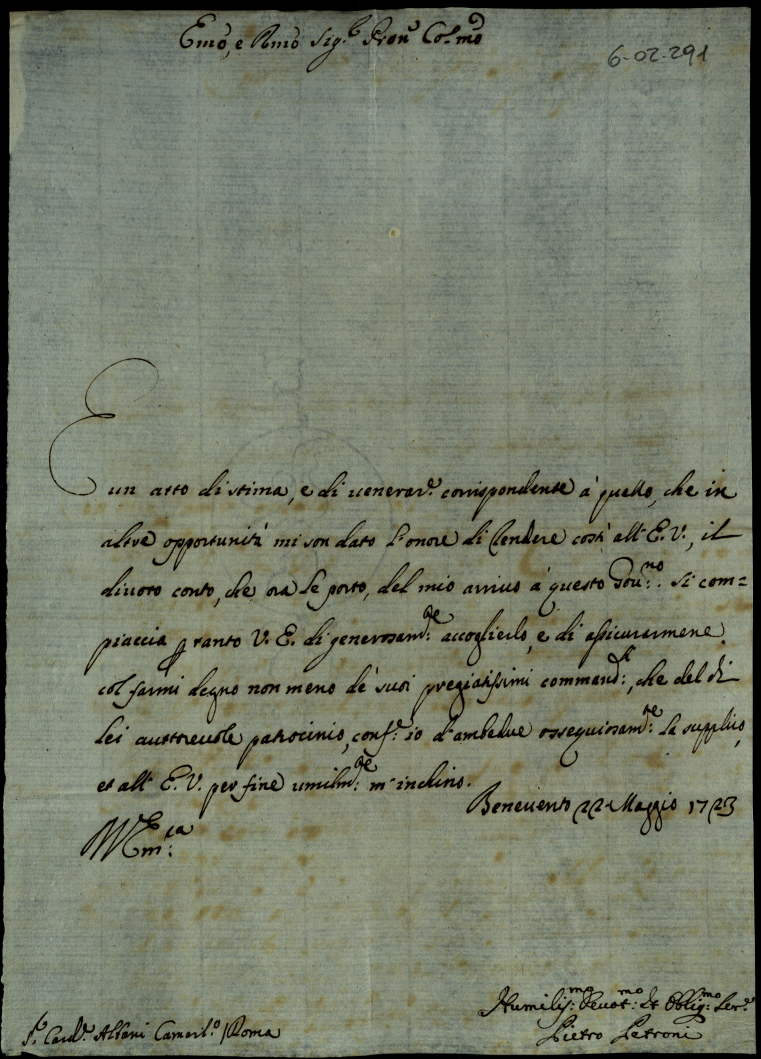 Emo, e Rmo Sig.re Pron Colmo
6-02-291
E un atto di stima, e di venerar.e corrispondente à quello, che in
altre opportunità mi son dato l'onore di rendere costì all'E.V., il
divoto conto, che ora le porto, del mio arrivo à questo Gou:no. Si com=
piaccia p tanto V. E. di generosam:te accoglierlo, e di assicurarmene
col farmi degno non meno de' suoi pregiatissimi command:ti, che del di
Lei auttorevole patrocinio, conf.e io d'ambedue ossequiosam:te la supplico,
et all'E. V. per fine umilm:te m'inchino.
Benevento 22 Maggio 1723
V Em:za
Humiliss:mo Devot:mo Et Oblig:mo Ser.e
Pietro Petroni
S.r Card.e Albani Camerl.o / Roma